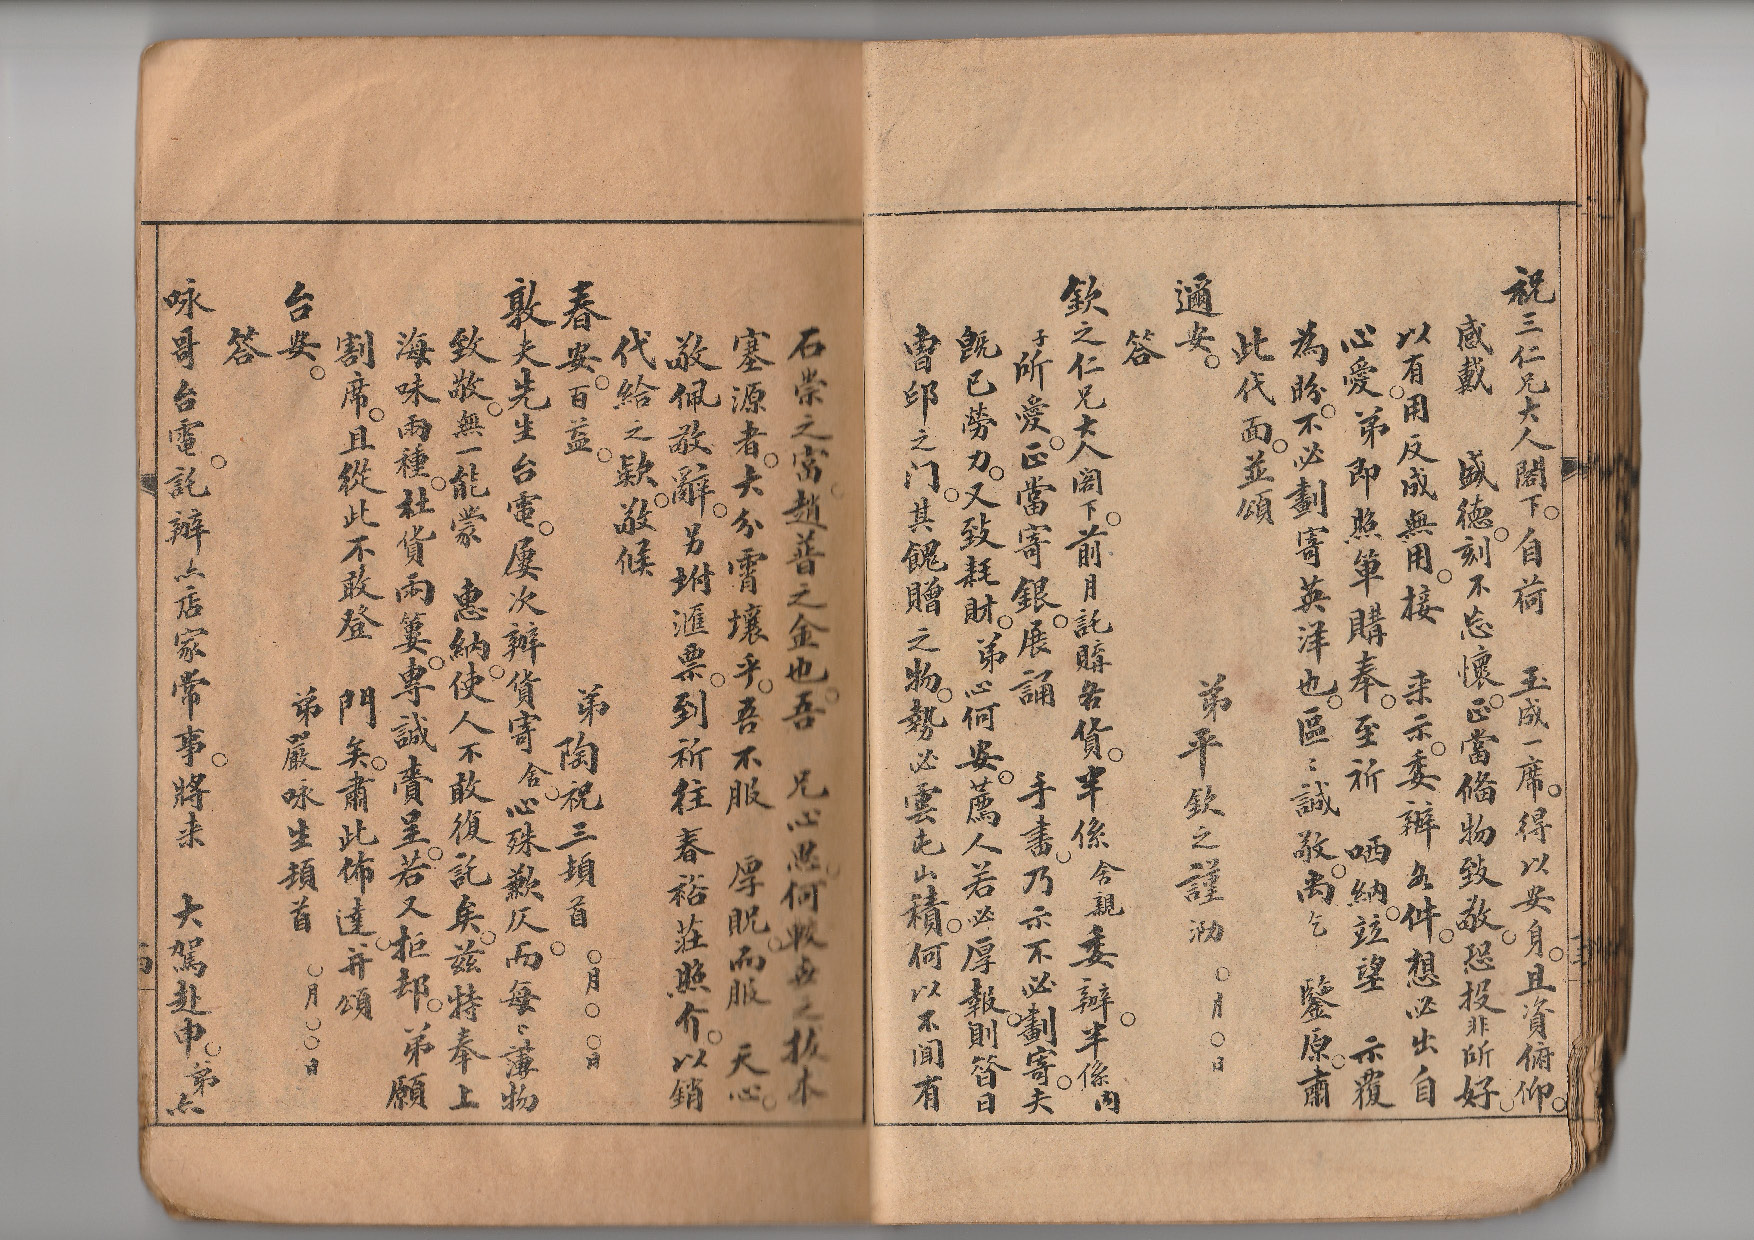 祝三仁兄大人閣下。自荷　玉成一席。得以安身。且資俯仰。
感戴　盛德。刻不忘懷。正當備物致敬。恐投非所好。
以有用反成無用。接　来示。委辦各件。想必出自
心愛。弟即照单購奉。至祈　哂納。竝望　示覆
為盼。不必劃寄英洋也。區〻誠敬。尚乞　鑒原。肅
此代面。並頌
邇安。　弟平欽之謹泐　○月○○日
答
欽之仁兄大人閣下。前月託購各貨。半係舍親委辦。半係内
子所愛。正當寄銀。展誦　手書。乃示不必劃寄。夫
既已勞力。又致耗財。弟心何安。薦人若必厚報。則昝日
曹邱之门。其餽贈之物。勢必雲屯山積。何以不聞有
石崇之富。趙普之金也。吾　兄心
塞源者。大分霄壤乎。吾不服　厚貺而服　天心。
敬佩敬辭。另坿滙票。到祈往春裕莊照介。以銷
代給之欵。敬候
春安。百益。　弟陶祝三頓首　○月○○日
敦夫先生台電。屡次辦貨寄舍。心殊歉仄。而每〻薄物
致敬。無一能蒙　惠納。使人不敢復託矣。兹特奉上
海味兩種。杜貨兩簍。專誠賫呈。若又拒却。弟願
割席。且從此不敢登　門矣。肅此佈達。并頌
台安。　弟嚴咏生頓首　○月○○日
答
咏哥台電。託辦亦店家常事。將来　大駕赴申。弟亦